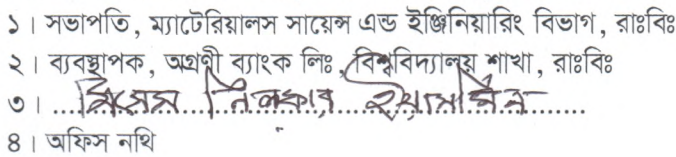 ১। সভাপতি, ম্যাটেরিয়ালস সায়েন্স এন্ড ইঞ্জিনিয়ারিং বিভাগ, রাঃবিঃ
২। ব্যবস্থাপক, অগ্রণী ব্যাংক লিঃ, বিশ্ববিদ্যালয় শাখা, রাঃবিঃ
৩। মিসেস দিলরুবা ইয়াসমিন
৪। অফিস নথি